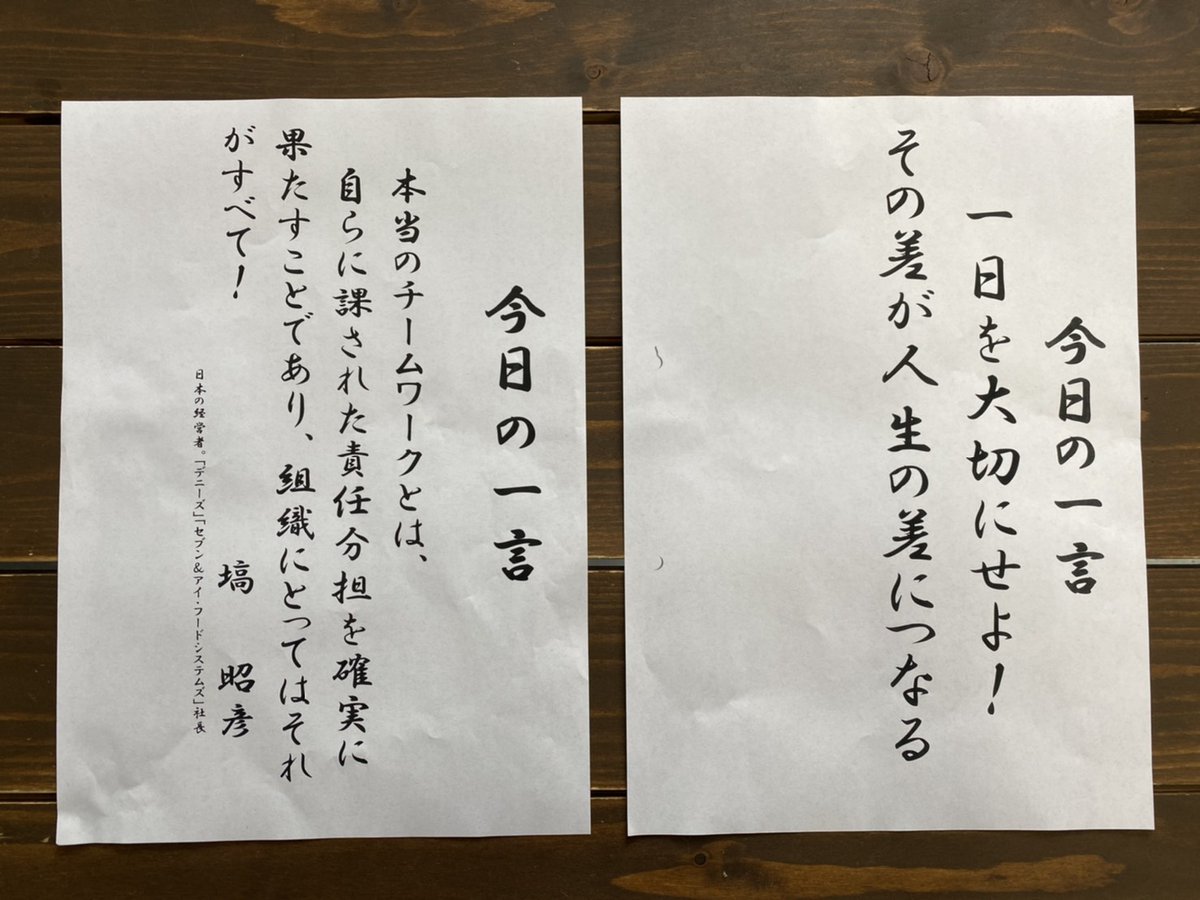 今日の一言
一日を大切にせよ!
その差が人生の差につなる
今日の一言
本当のチームワークとは、
自らに課された責任分担を確実に
果たすことであり、組織にとってはそれ
がすべて!
塙 昭彦
日本の経営者。「デニーズ」「セブン&アイ・フードシステムズ」社長